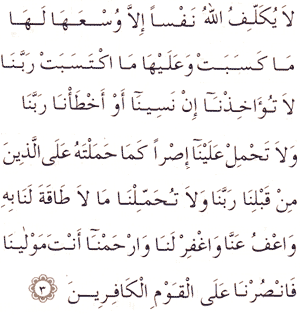 لَا يُكَلِّفُ اللهُ نَفْساً إِلَّا وُسْعَهَا لَهَا
مَا كَسَبَتْ وَعَلَيْهَا مَا اكْتَسَبَتْ رَبَّنَا
لَا تُؤَاخِذْنَٓا إِنْ نَسِينَٓا أَوْ أَخْطَأْنَا رَبَّنَا
وَلَا تَحْمِلْ عَلَيْنَٓا إِصْراً كَمَا حَمَلْتَهُ عَلَى الَّذِينَ
مِنْ قَبْلِنَا رَبَّنَا وَلَا تُحَمِّلْنَا مَا لَا طَاقَةَ لَنَا بِهِ
وَاعْفُ عَنَّا وَاغْفِرْ لَنَا وَارْحَمْنَٓا أَنْتَ مَوْلٰينَا
فَانْصُرْنَا عَلَى الْقَوْمِ الْكَافِرِينَ ٣